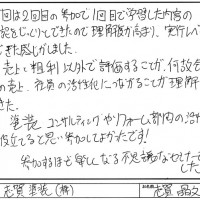 回は2回目の参加で1回目で学習した内容の
認をじっくりできたので理解度が高まり、実行して
きた感じがしました。
売上と粗利以外で評価することが、何故会
の売上、社員の活性化につながることが理解
ました。
塗装コンサルティングやリフォーム部門の活性
役立てると思い参加してよかったです!
参加するほど楽しくなる不思議な
した
志賀塗装(株)
お名前 志賀 晶文